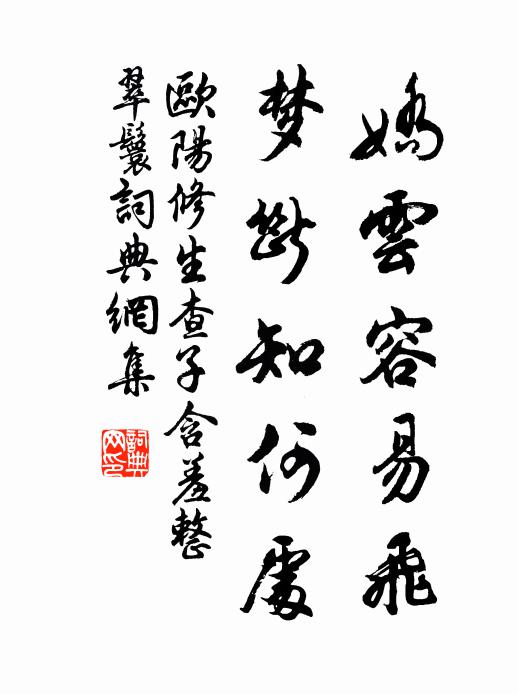 嬌雲容易飛
梦斷知何處
歐陽修生查子含羞整
翠鬟詞典網集
詞典
网印